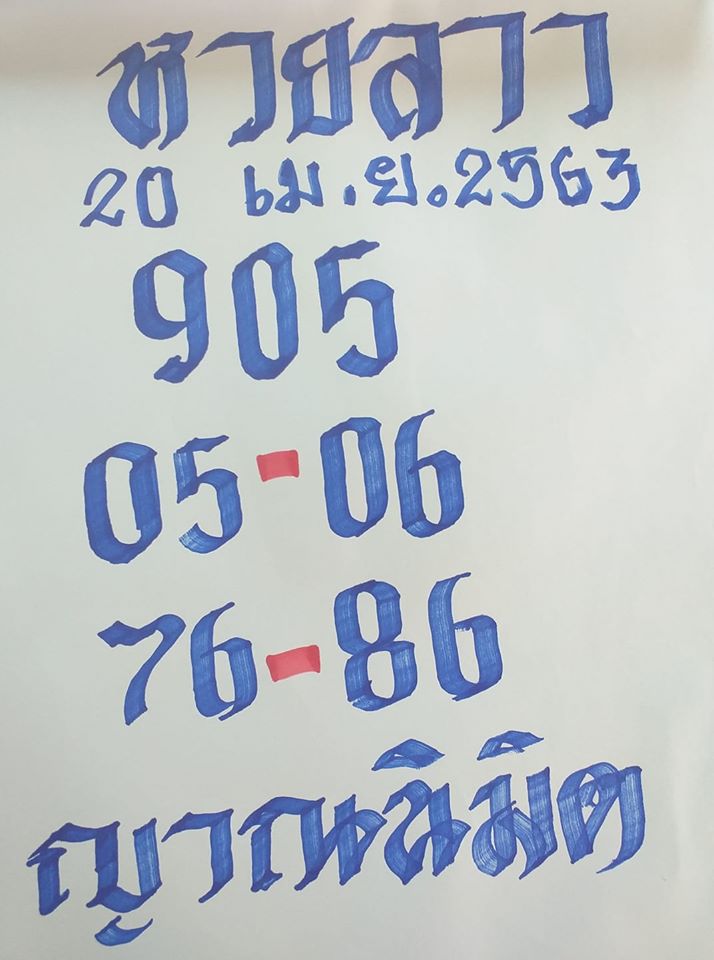 หวยลาว
20 เม.ย.2563
905
05-06
76-86
ญาณนิมิต